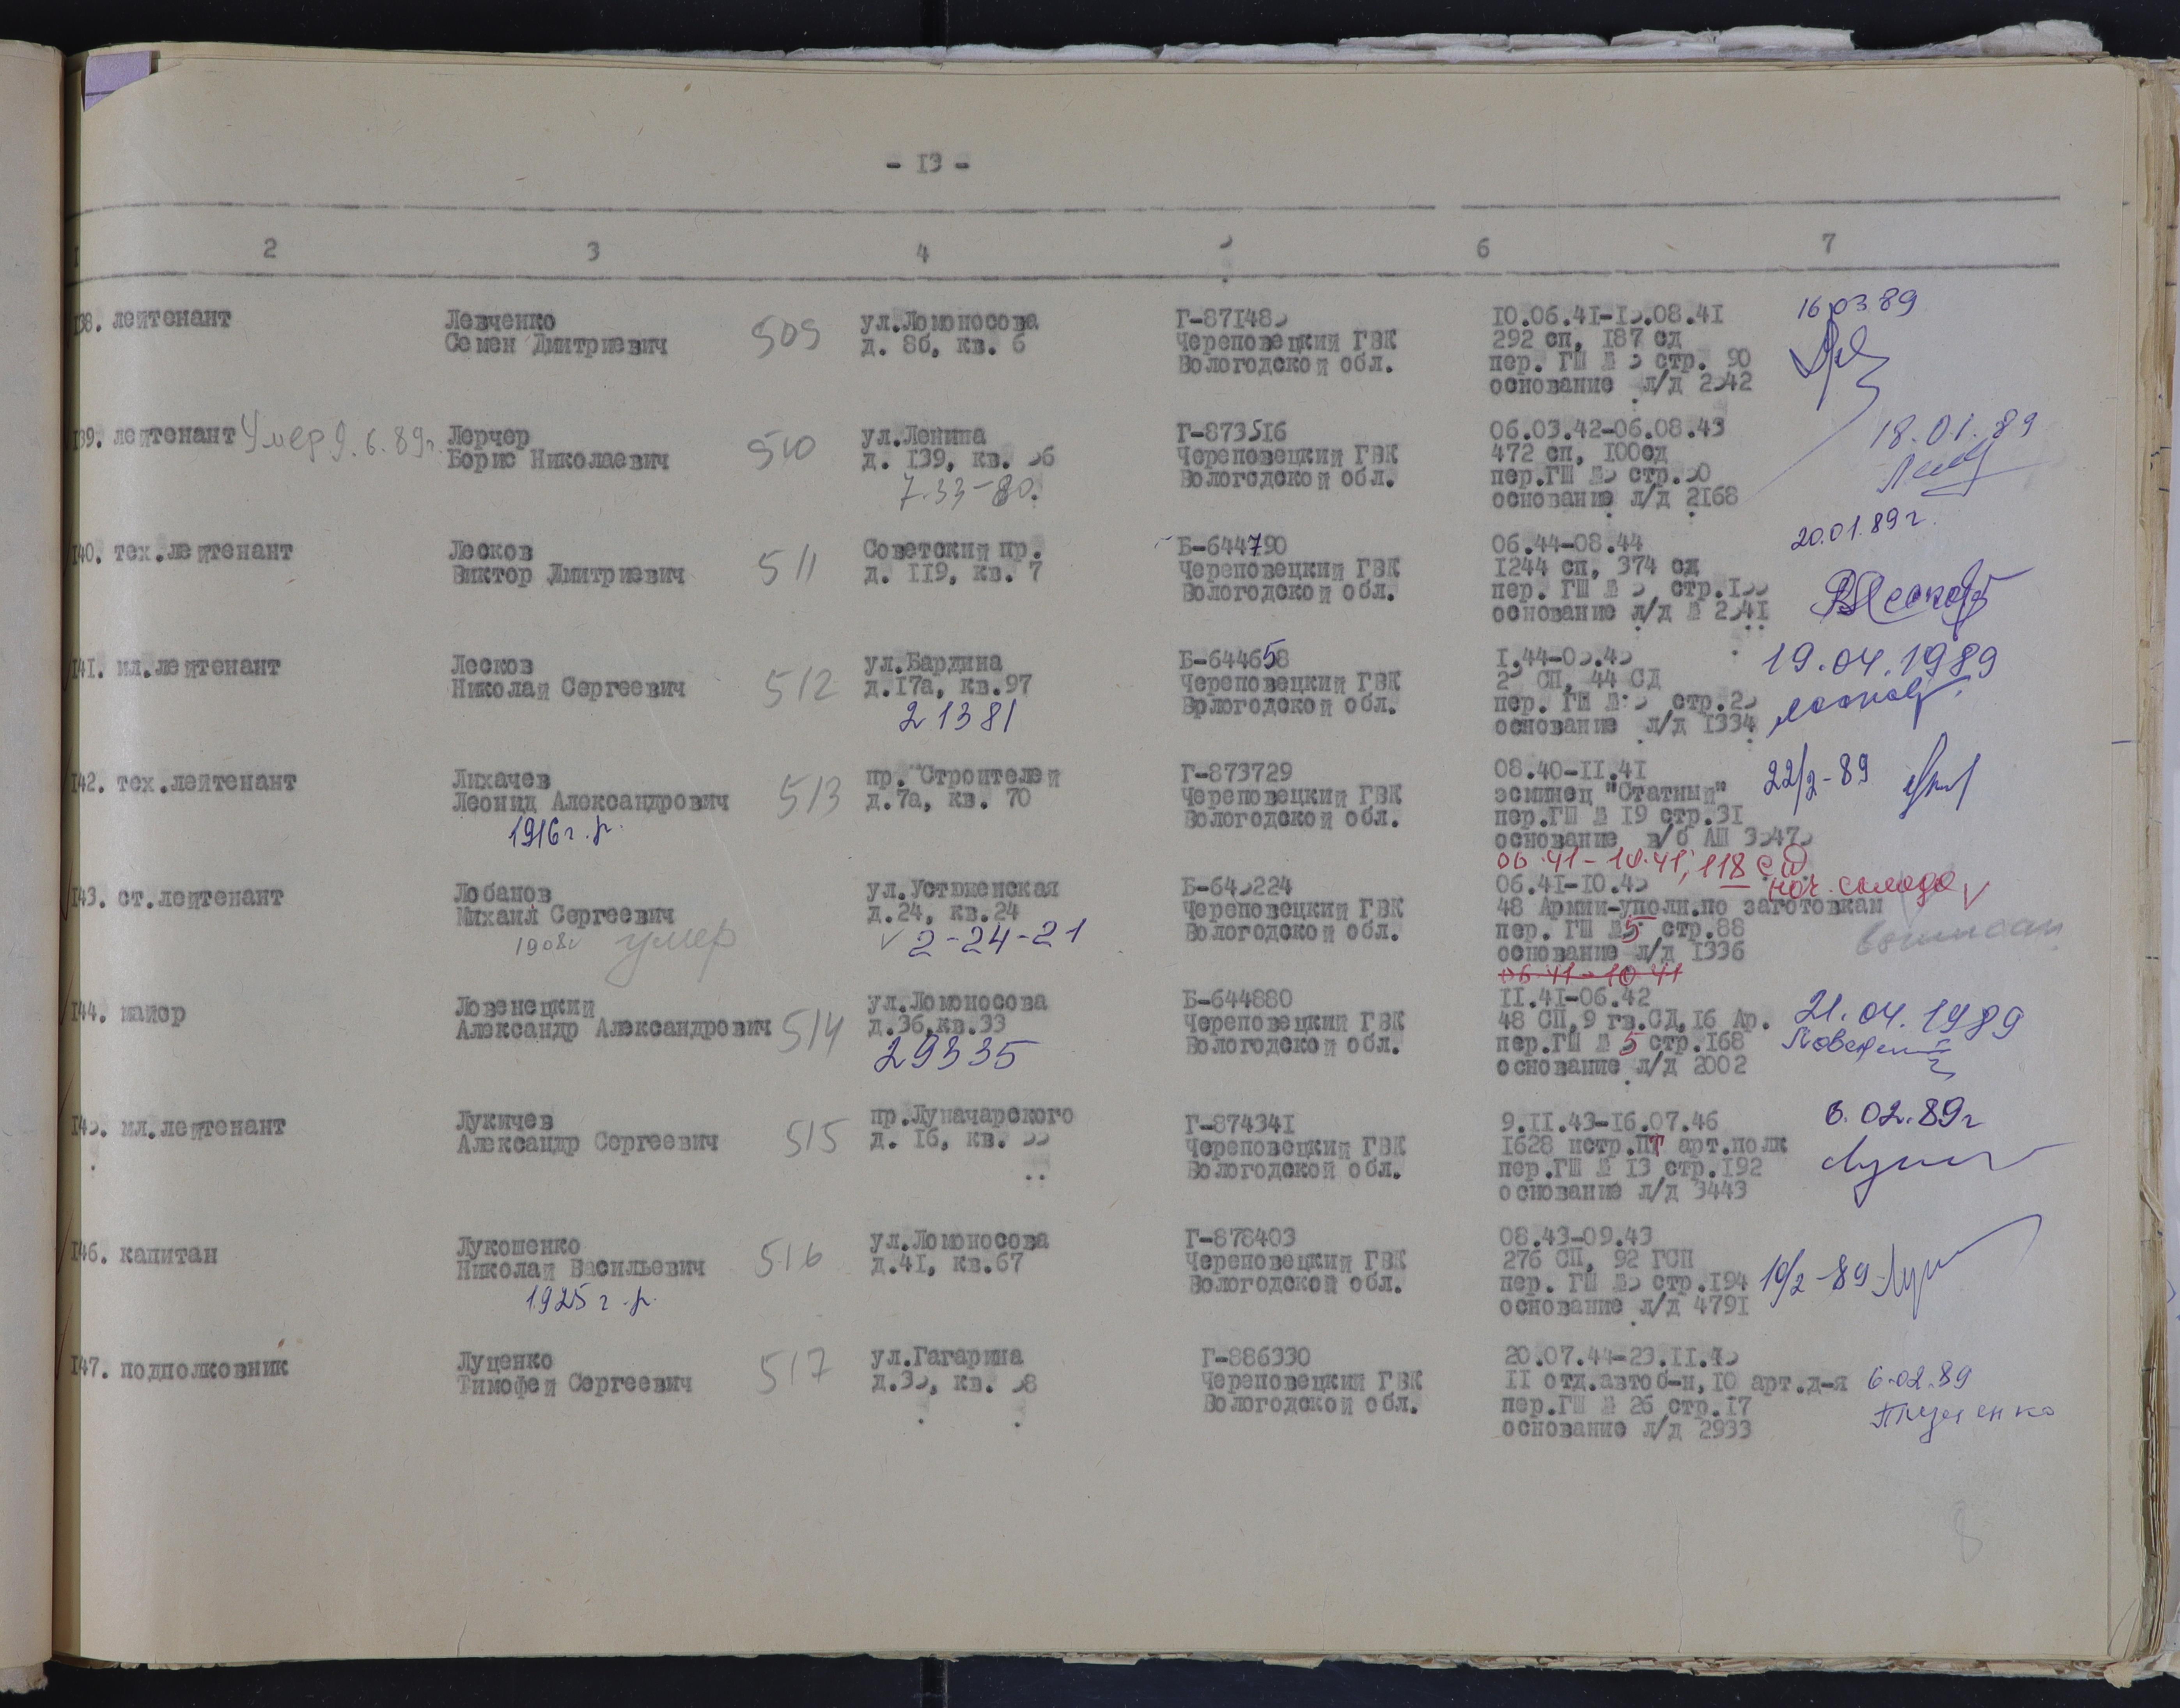 - 13 -
1 2 3 4 5 6 7
138. лейтенант
Левченко
Семен Дмитриевич
509
ул.Ломоносова
д. 8б, кв. 6
Г-871485
Череповецкий ГВК
Вологодской обл.
10.06.41-15.08.41
292 сп, 187 сд
пер. ГШ № 5 стр. 90
основание л/д 2542
16.03 89
139. лейтенант Умер 9.6.89г.
Лерчер
Борис Николаевич
510
ул.Ленина
д. 139, кв. 56
7-33-80.
Г-873516
Череповецкий ГВК
Вологодской обл.
06.03.42-06.08.43
472 сп, 100сд
пер.ГШ №5 стр.50
основание л/д 2168
18.01.89
140. тех.лейтенант
Лесков
Виктор Дмитриевич
511
Советский пр.
д. 119, кв. 7
Б-644790
Череповецкий ГВК
Вологодской обл.
06.44-08.44
1244 сп, 374 сд
пер. ГШ № 5 стр.155
основание л/д № 2541
20.01.89г.
ВЛесков
141. мл.лейтенант
Лесков
Николай Сергеевич
512
ул.Бардина
д.17а, кв.97
21381
Б-644658
Череповецкий ГВК
Врлогодской обл.
1.44-05.45
25 СП, 44 СД
пер. ГШ № 5 стр.25
основание л/д 1334
19.04.1989
Лесков
142. тех.лейтенант
Лихачев
Леонид Александрович
1916г.р.
513
пр. Строителей
д.7а, кв. 70
Г-873729
Череповецкий ГВК
Вологодской обл.
08.40-11.41
эсминец "Статный"
пер.ГШ № 19 стр.31
основание в/б АШ 35475
22/2-89
143. ст.лейтенант
Лобанов
Михаил Сергеевич
1908г умер
ул.Устюженская
д.24, кв.24
2-24-21
Б-645224
Череповецкий ГВК
Вологодской обл.
06.41-10.41; 118 СД
нач. склада
06.41-10.45
48 Армии-уполн.по заготовкам
пер. ГШ №5 стр.88
основание л/д 1336
06.41-10.41
144. майор
Ловенецкий
Александр Александрович
514
ул.Ломоносова
д.36,кв.33
29335
Б-644880
Череповецкий ГВК
Вологодской обл.
11.41-06.42
48 СП,9 гв.СД,16 Ар.
пер.ГШ № 5 стр.168
основание л/д 2002
21.04.1989
145. мл.лейтенант
Лукичев
Александр Сергеевич
515
пр.Луначарского
д. 16, кв. 55
Г-874341
Череповецкий ГВК
Вологодской обл.
9.11.43-16.07.46
1628 истр.ПТ арт.полк
пер.ГШ № 13 стр.192
основание л/д 3443
6.02.89г
146. капитан
Лукошенко
Николай Васильевич
1925г.р.
516
ул.Ломоносова
д.41, кв.67
Г-878403
Череповецкий ГВК
Вологодской обл.
08.43-09.43
276 СП, 92 ГСП
пер. ГШ №5 стр.194
основание л/д 4791
10/2-89
147. подполковник
Луценко
Тимофей Сергеевич
517
ул.Гагарина
д.35, кв. 58
Г-886330
Череповецкий ГВК
Вологодской обл.
20.07.44-23.11.45
11 отд.автоб-н,10 арт.д-я
пер.ГШ № 26 стр.17
основание л/д 2933
6-02.89
8